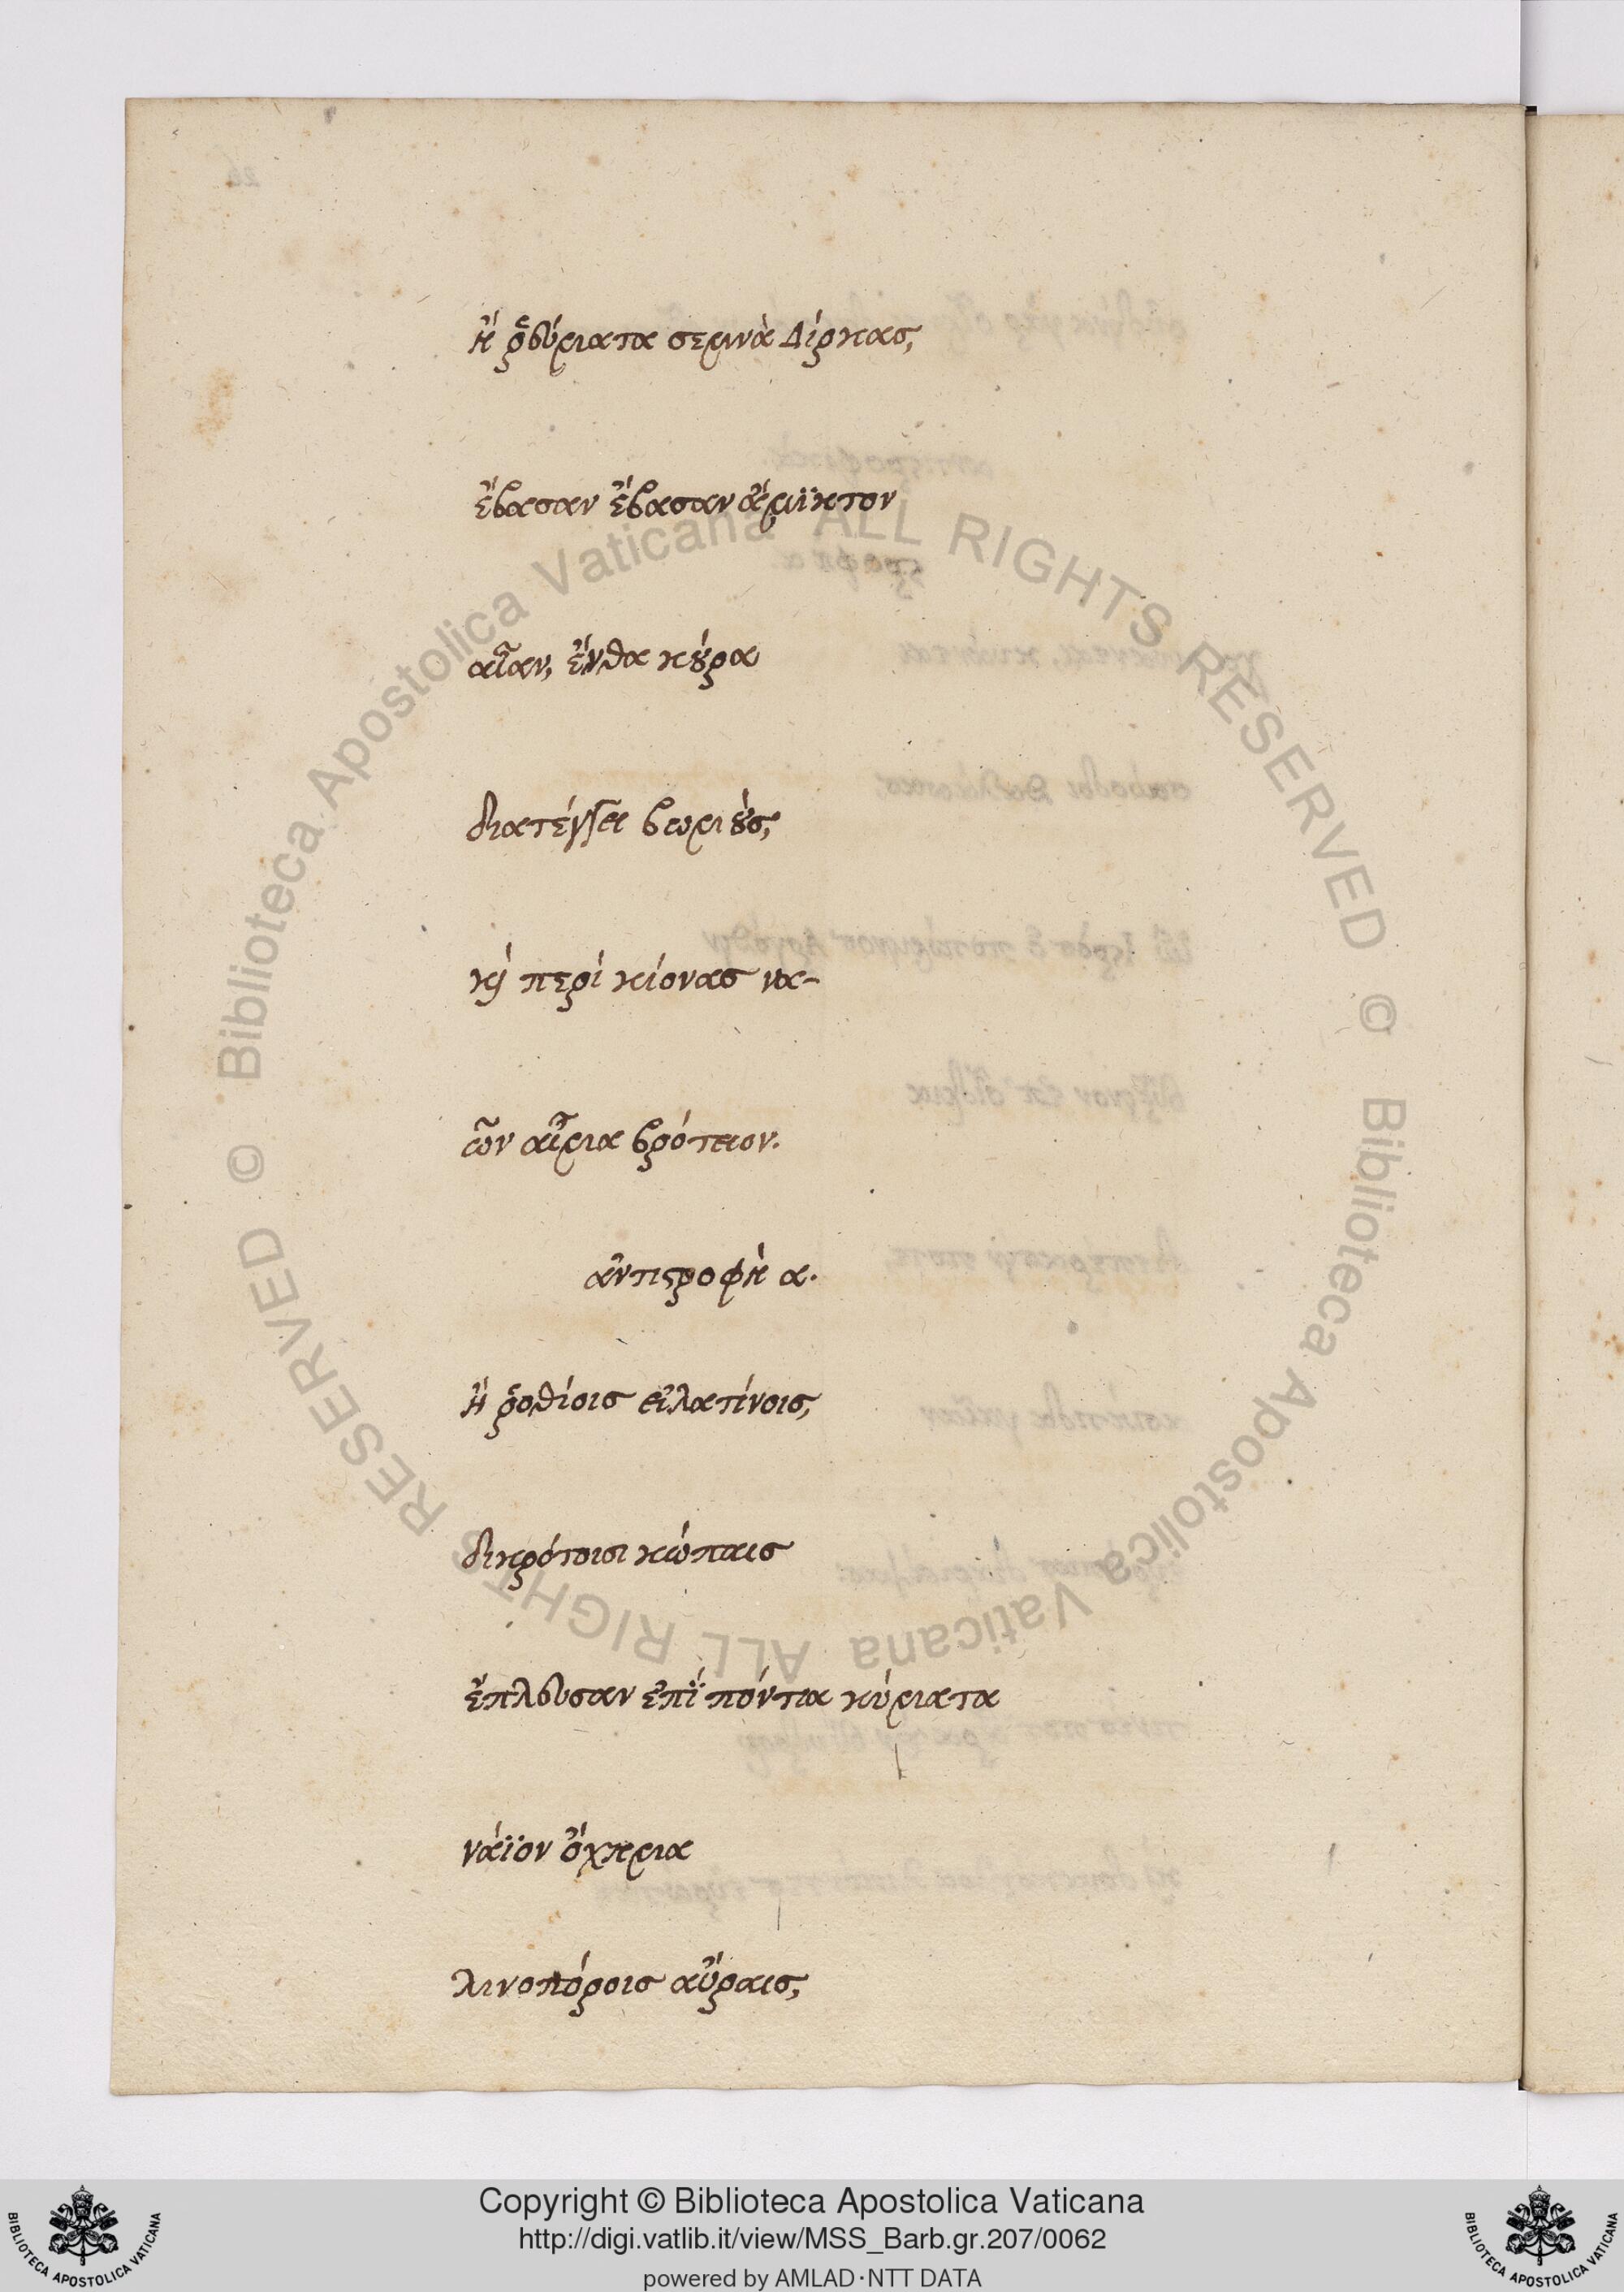 ἢ ῥεύματα σεμνὰ Δίρκας,
ἔβασαν ἔβασαν ἄμικτον
αἶαν, ἔνθα κούρα
διατέγγει βωμοὺς,
καὶ περὶ κίονας να-
ῶν αἷμα βρότειον.
ἀντιστροφὴ α.
ἢ ῥοθίοις εἰλατίνοις,
δικρότοισι κώπαις
ἔπλευσαν ἐπὶ πόντια κύματα
νάϊον ὄχημα
λινοπόροις αὔραις,
Biblioteca Apostolica Vaticana ALL RIGHTS RESERVED ©
Biblioteca Apostolica Vaticana ALL RIGHTS RESERVED ©
Copyright © Biblioteca Apostolica Vaticana
http://digi.vatlib.it/view/MSS_Barb.gr.207/0062
powered by AMLAD·NTT DATA
BIBLIOTECA APOSTOLICA VATICANA
BIBLIOTECA APOSTOLICA VATICANA